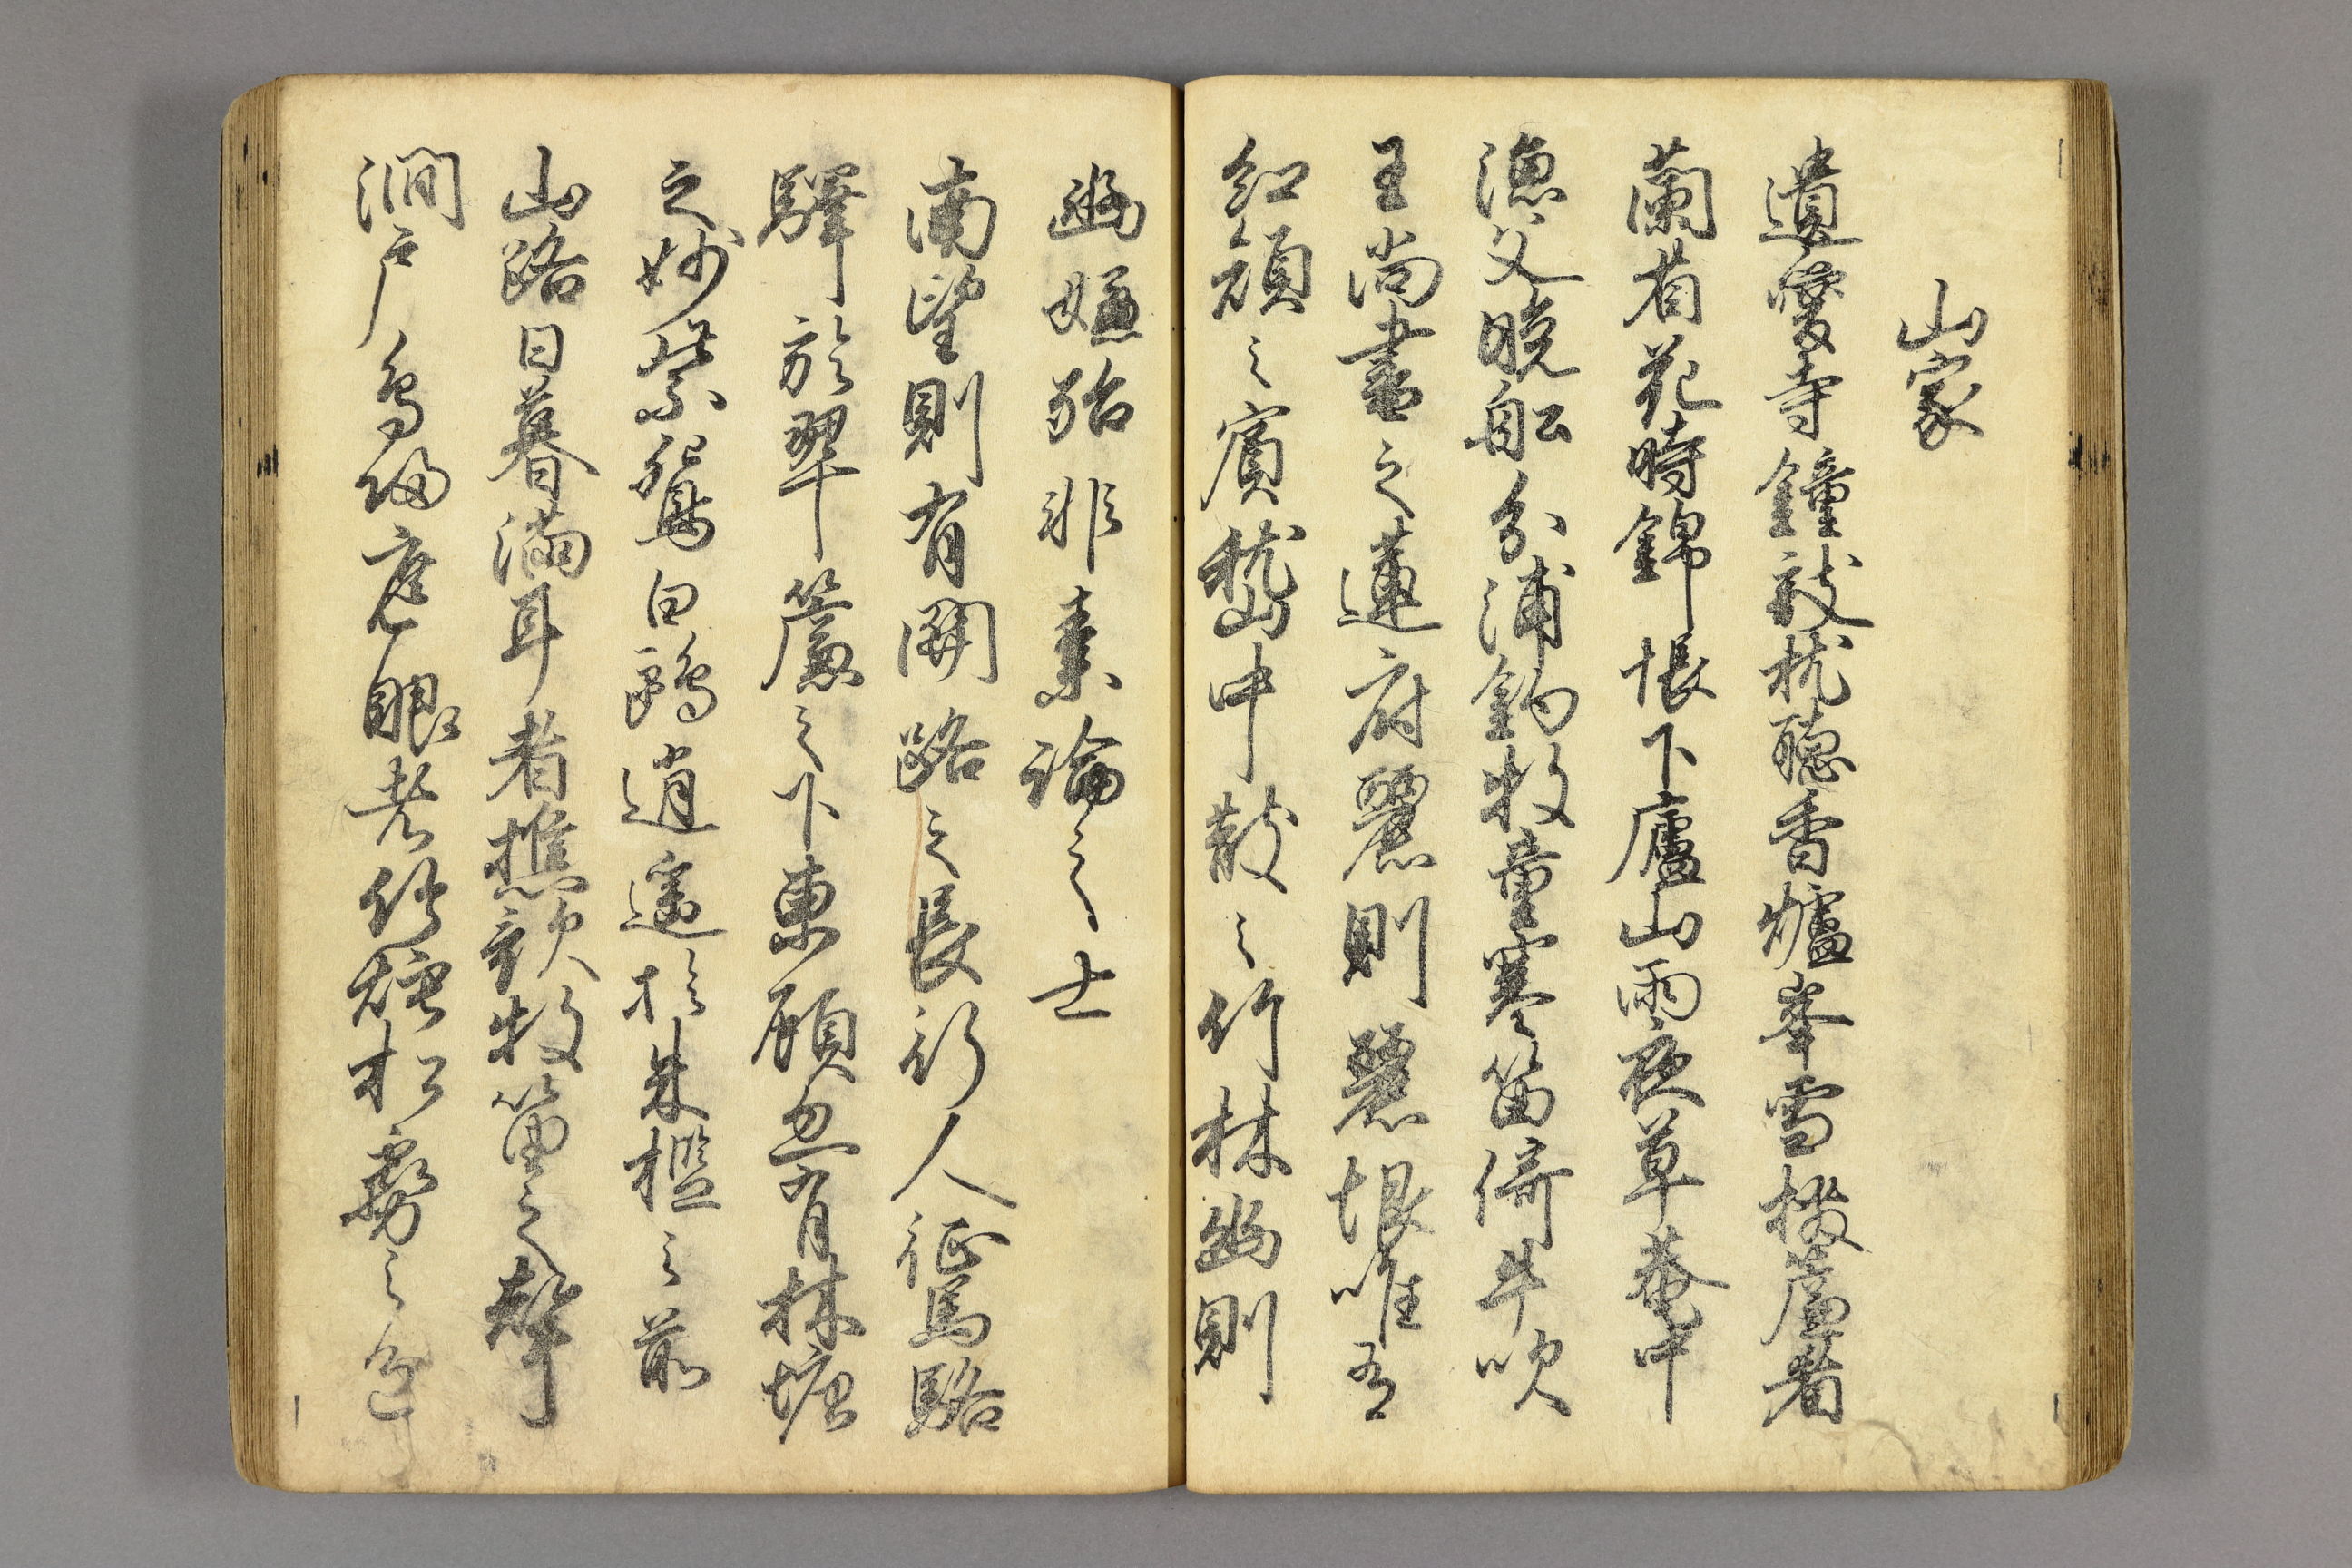 山家
遺愛寺鐘敧枕聴香爐峯雪撥簾看
蘭省花時錦帳下廬山雨夜草菴中
漁父晩舩分浦釣牧童寒笛倚牛吹
王尚書之蓮府麗則麗恨唯有
紅顔之賓嵆中散之竹林幽則
幽嫌殆非素論之士
南望則有關路之長行人征馬駱
驛於翠簾之下東顧忽有林塘
之妙紫鴛白鷗逍遥於朱檻之前
山路日暮満耳者樵歌牧笛之聲
澗戸鳥帰遮眼者竹煙松霧之色